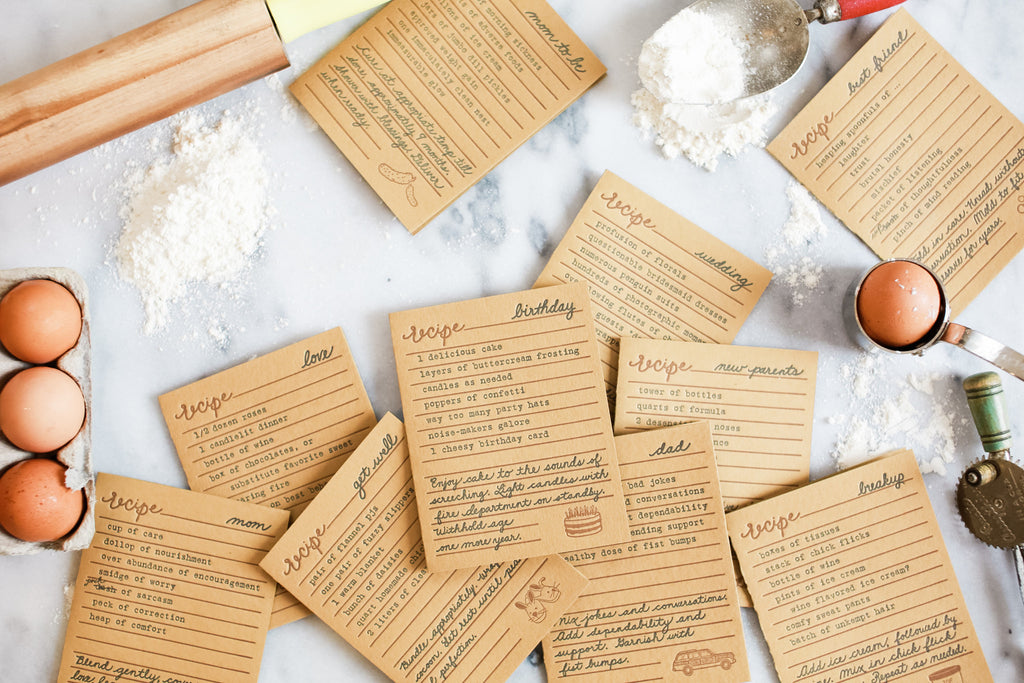 mom to be
morning sickness
of adverse foods
of ice cream
jars of jumbo dill pickles
approved weight gain
one immaculately clean nest
immeasurable glow
cure at appropriate temp till
done, approximately 9 months.
Shower with blessings! Deliver
when ready.
best friend
recipe
heaping spoonfuls of ...
laughter
trust
brutal honesty
mischief
packet of listening
of thoughtfulness
pinch of mind reading
in care. Knead without
Mold to fit
serve for years.
recipe
wedding
profusion of florals
questionable bridesmaid dresses
numerous penguin suits
hundreds of photographic
flutes of
guests
recipe
birthday
1 delicious cake
layers of buttercream frosting
candles as needed
poppers of confetti
way too many party hats
noise-makers galore
1 cheesy birthday card
Enjoy cake to the sounds of
screching. Light candles with
fire department on standby.
Withhold age
one more year.
recipe
love
1/2 dozen roses
1 candlelit dinner
bottle of wine
box of chocolates, or
substitute favorite sweet
fire
best
recipe
new parents
tower of bottles
quarts of formula
2
noses
recipe
get well
pair of flannel pjs
one pair of fuzzy slippers
1 warm blanket
bunch of daisies
quart homemade
2 liters of
Bundle appropriately
cocoon. Let rest until
perfection.
dad
bad jokes
conversations
dependability
support
healthy dose of fist bumps
mix jokes and conversations.
Add dependability and
support. Garnish with
fist bumps.
recipe
mom
cup of care
dollop of nourishment
over abundance of encouragement
smidge of worry
of sarcasm
peck of correction
heap of comfort
Blend gently,
recipe
breakup
boxes of tissues
stack of chick flicks
bottle of wine
pints of ice cream
wine flavored ice cream?
comfy sweat pants
batch of unkempt hair
Add ice cream, followed by
wine, mix in chick flick
Repeat as needed.